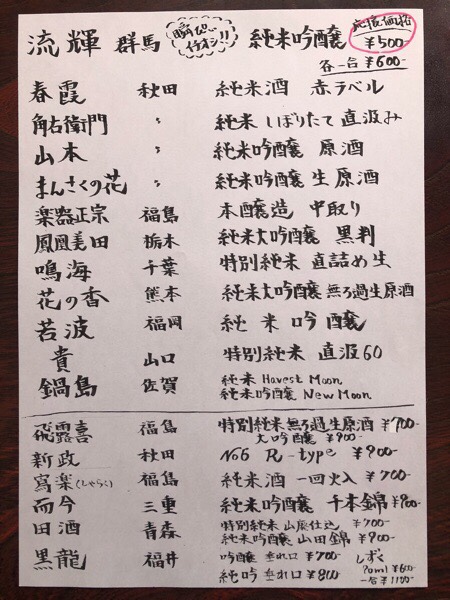 流輝 群馬 瞬ぴん イチオシ!! 純米吟醸 応援価格 ¥500-
各一合 ¥600-
春霞 秋田 純米酒 赤ラベル
角右衛門 〃 純米 しぼりたて 直汲み
山本 〃 純米吟醸 原酒
まんさくの花 〃 純米吟醸 生原酒
楽器正宗 福島 本醸造 中取り
鳳凰美田 栃木 純米大吟醸 黒判
鳴海 千葉 特別純米 直詰め生
花の香 熊本 純米大吟醸 無ろ過生原酒
若波 福岡 純米吟醸
貴 山口 特別純米 直汲60
鍋島 佐賀 純米 Havest Moon
純米吟醸 New Moon
飛露喜 福島 特別純米 無ろ過生原酒 ¥700-
大吟醸 ¥900-
新政 秋田 No6 R-type ¥900-
寫楽(しゃらく) 福島 純米酒 一回火入 ¥700-
而今 三重 純米吟醸 千本錦 ¥900-
田酒 青森 特別純米 山廃仕込 ¥700-
純米吟醸 山田錦 ¥900-
黒龍 福井 吟醸 垂れ口 ¥700- しずく
純吟 垂れ口 ¥800 90ml ¥600-
一合 ¥1100-